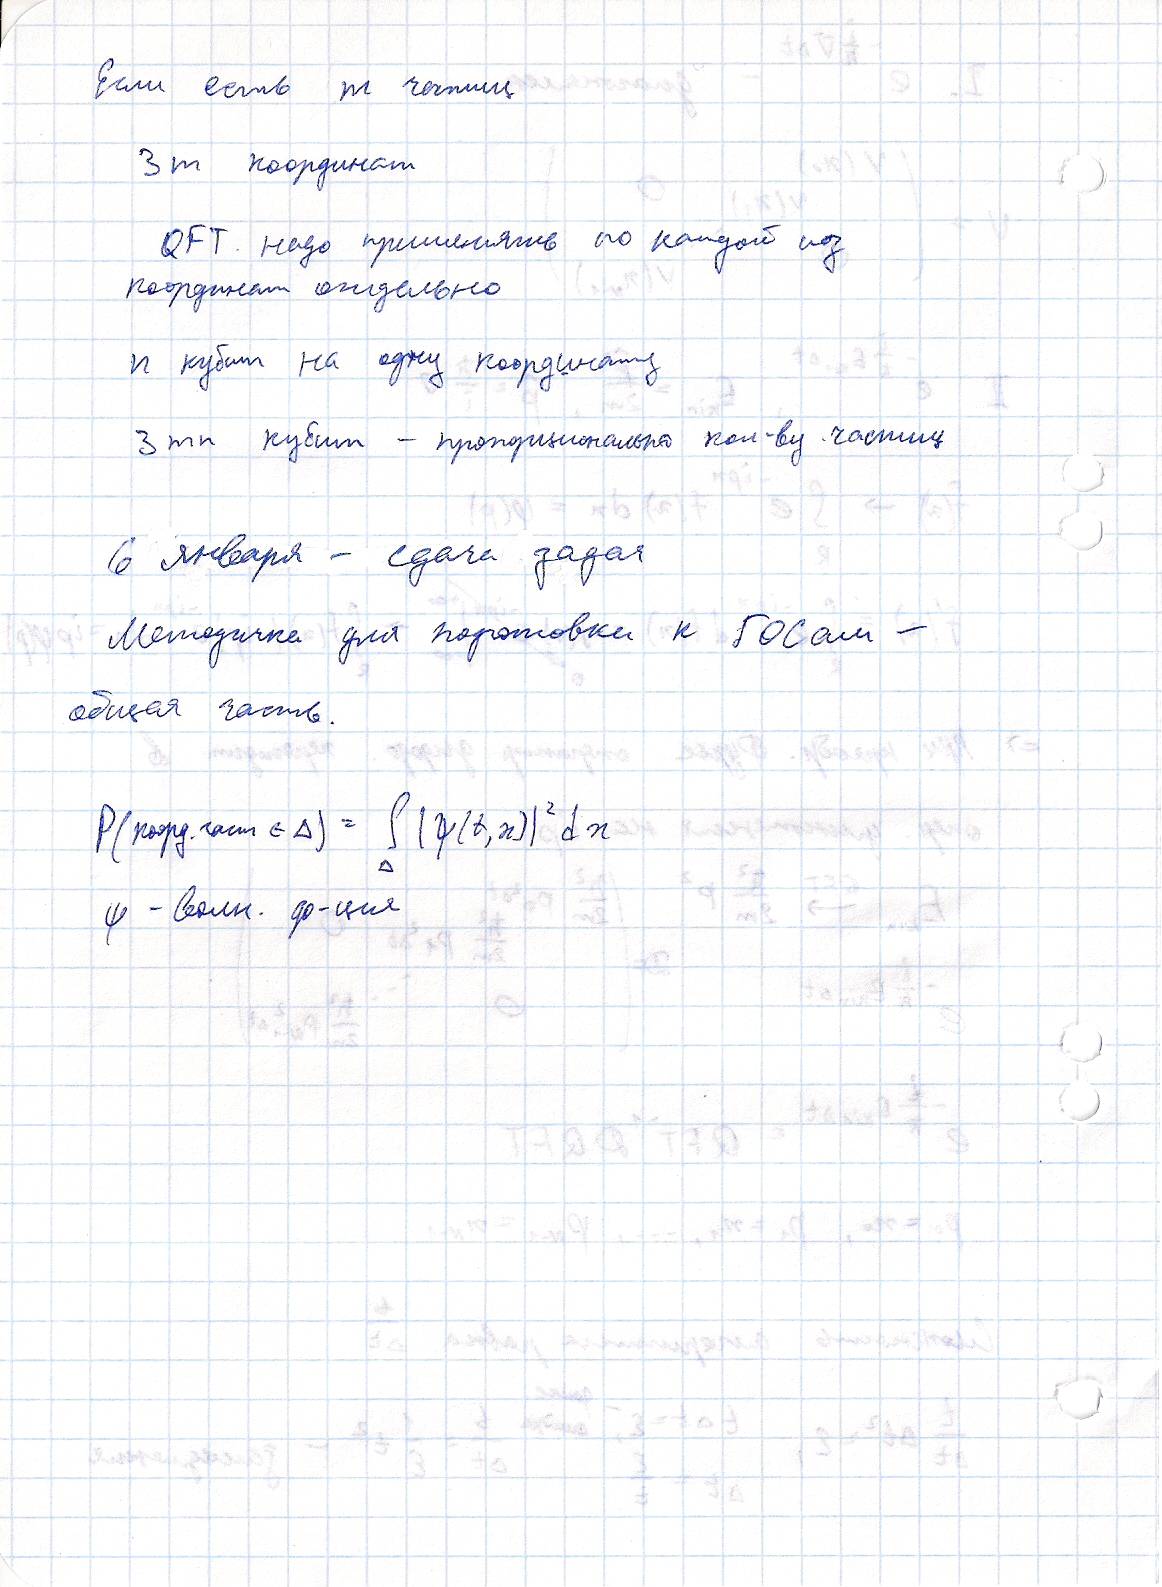 Если есть m частиц
3m координат
QFT надо применять по каждой из
координат отдельно
n кубит на одну координату
3mn кубит – пропорционально кол-ву частиц
6 января – сдача задач
Методичка для подготовки к ГОСам –
общая часть.
P(коорд. част ∈ Δ) = ∫_Δ |ψ(t,x)|² dx
ψ – волн. ф-ция